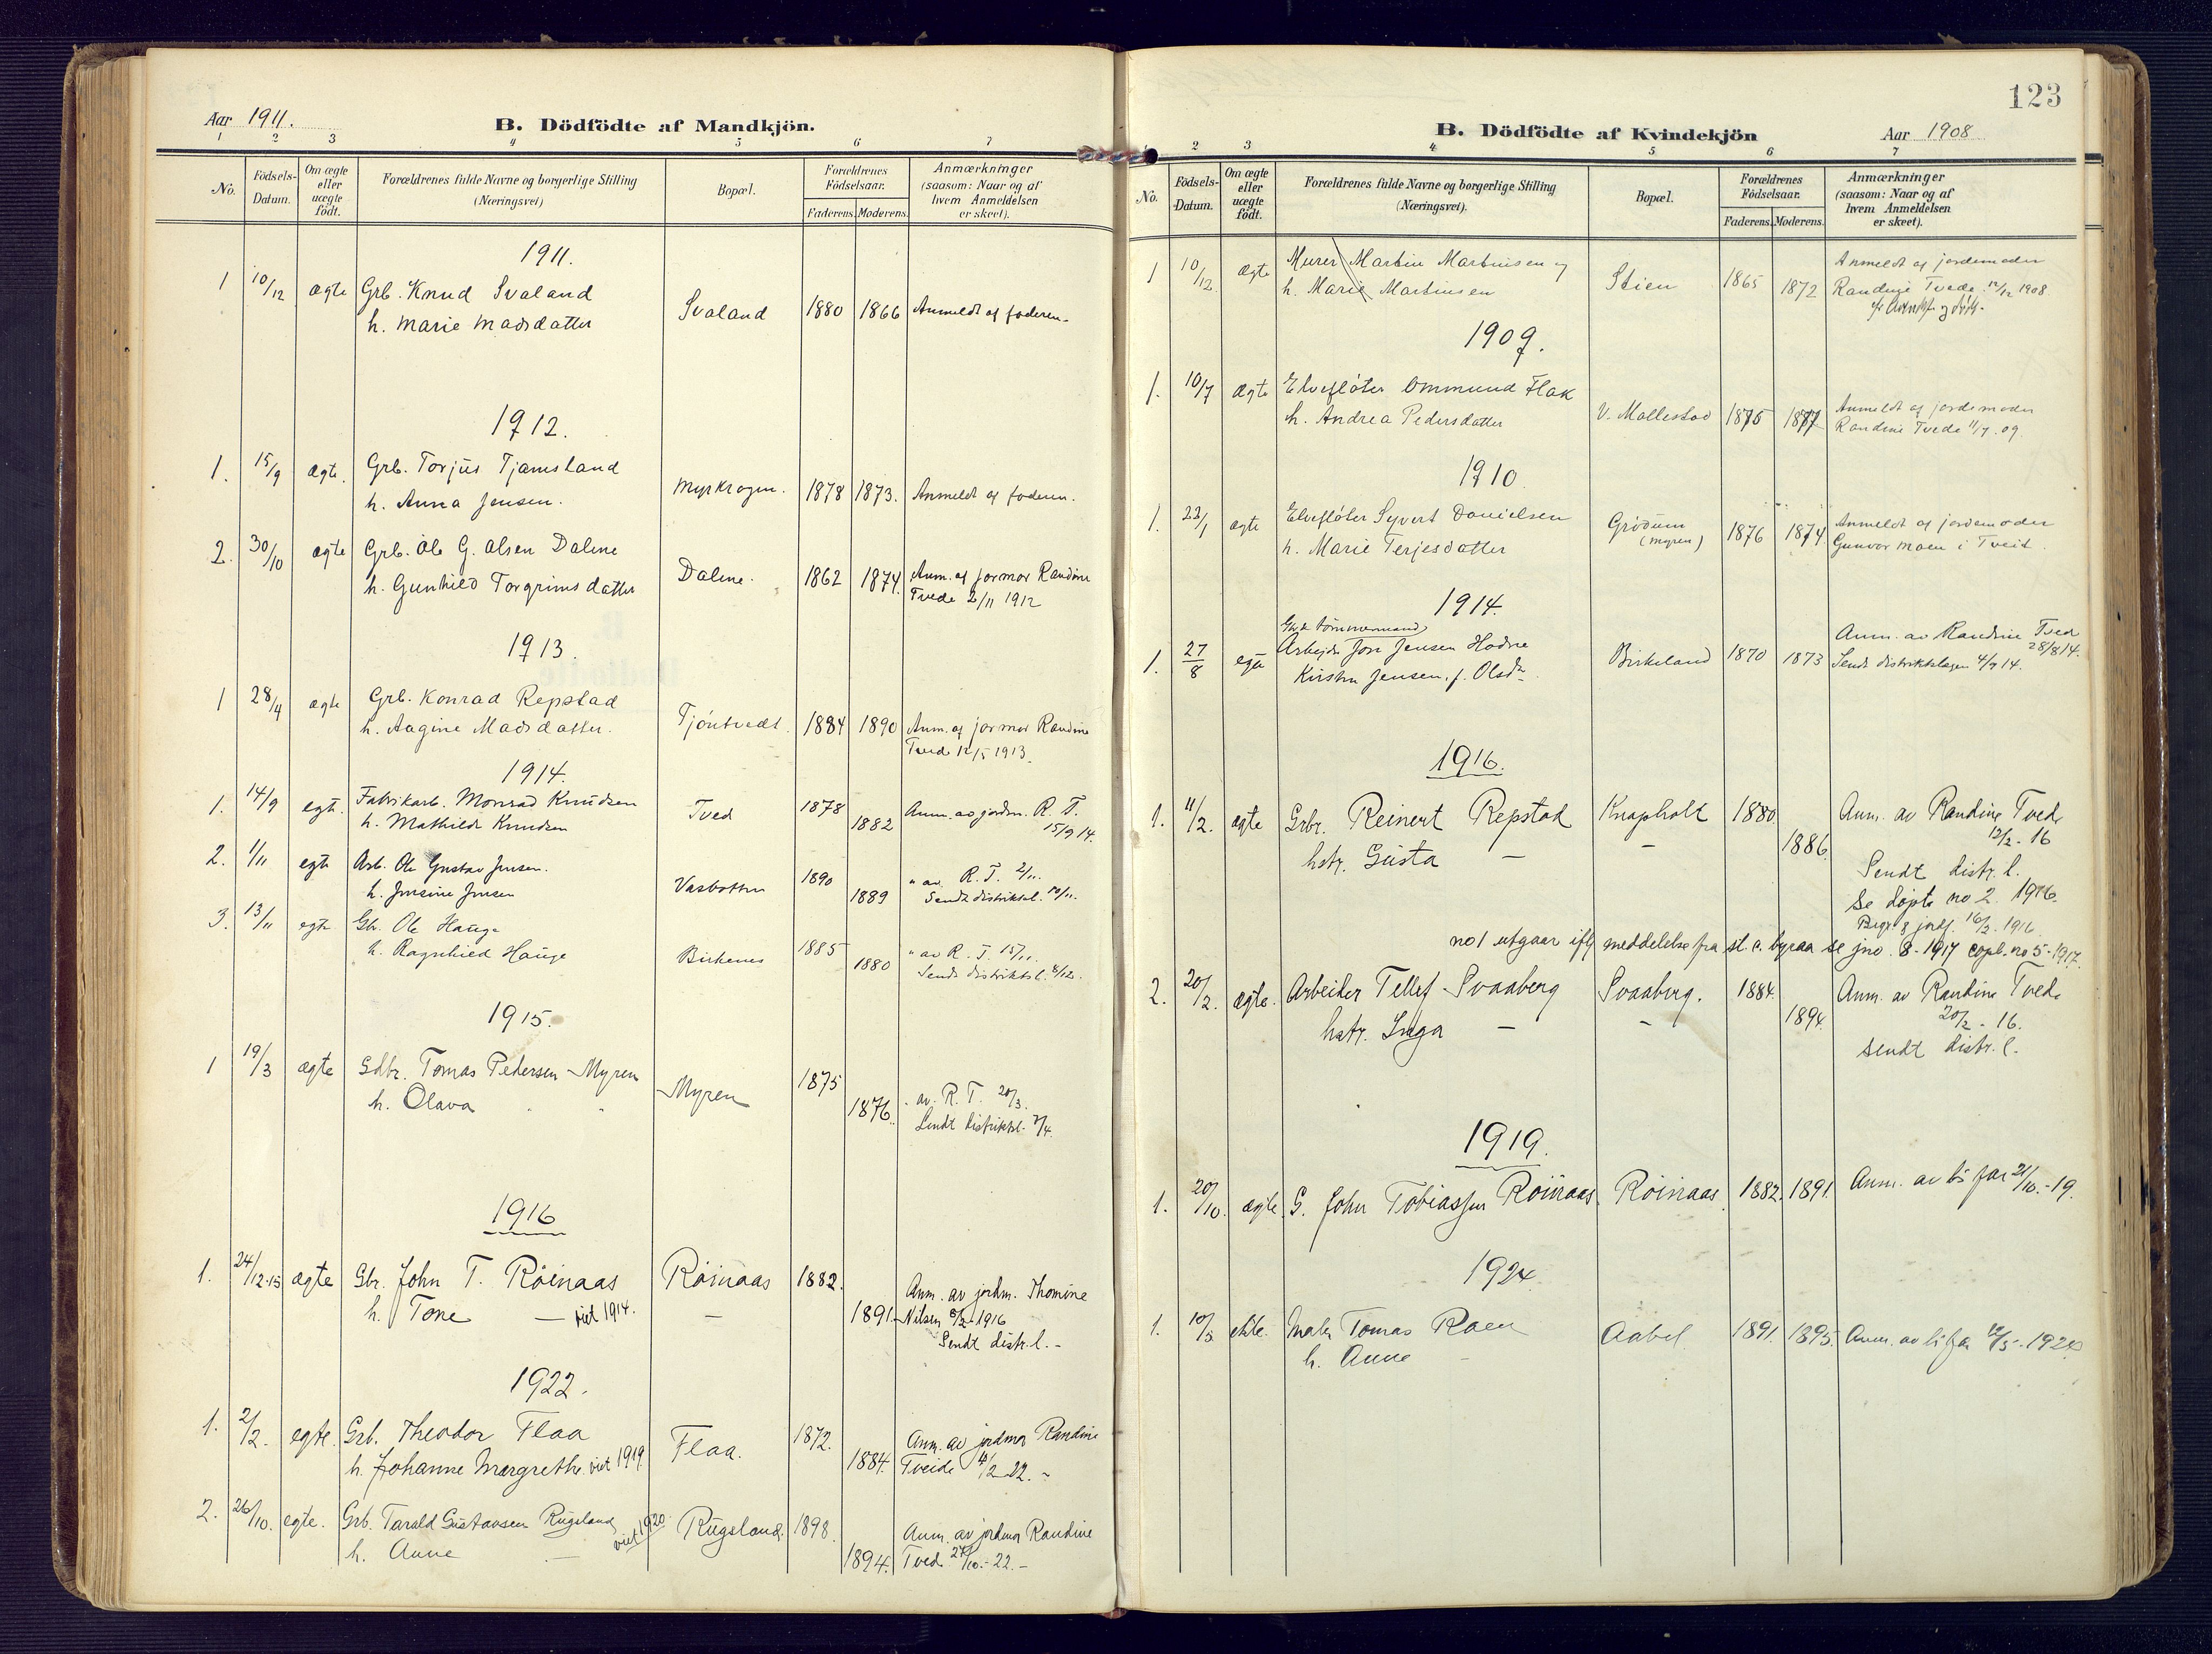 Aar 1911.
B. Dödfödte af Mandkjön.
1 2 3 4 5 6 7
No. Födsels-Datum. Om ægte eller uægte födt. Forældrenes fulde Navne og borgerlige Stilling (Næringsvei) Bopæl. Forældrenes Födselsaar. Faderens. Moderens. Anmærkninger (saasom: Naar og af hvem Anmeldelsen er skeet).
1911.
1 10/12 ægte Grb. Knud Svaland Svaland 1880 1866 Anmeldt af faderen.
h. Marie Madsdatter
1912.
1. 15/9 ægte. Grb. Torjus Tjamsland Myrkrogen. 1878 1873. Anmeldt af faderen.
h. Anna Jensen.
2. 30/10 ægte Grb. Ole G. Olsen Dalene Dalene. 1862 1874. Anm. af jormor Randine
h. Gunhild Torgrimsdatter Tvede 2/11 1912
1913.
1 28/4 ægte Grb. Konrad Repstad Tjöntvedt. 1884 1890 Anm. af jormor Randine
h. Aagine Madsdatter. Tvede 12/5 1913.
1914.
1. 14/9 egte. Fabrikarb. Monrad Knudsen Tved 1878 1882 Anm. av jordm. R. T.
h. Mathilde Knudsen 15/9 14.
2. 1/11 egte Arb. Ole Gustav Jensen. Vasbotten 1890 1889 " av R. T. 2/11.
h. Jensine Jensen Sendt distriktsl. 10/11.
3. 13/11 egte Gbr. Ole Hauge Birkenes 1885 1880 " av R. T. 15/11.
h. Ragnhild Hauge Sendt distriktsl. 8/12.
1915.
1 19/3 ægte Gdbr. Tomas Pedersen Myren Myren 1875 1876. " av. R. T. 20/3.
h. Olava " " Sendt distriktsl. 7/4.
1916
1. 24/12-15 ægte Gbr. John T. Röinaas Röinaas 1882. 1891. Anm. av jordm. Thomine
h. Tone — viet 1914. — Nilsen 8/2-1916
Sendt distr.l. -
1922.
1. 2/2. egte. Grb. Theodor Flaa Flaa. 1872. 1884. Anm. av jordmor Randine
h. Johanne Margrethe. viet 1919. Tveide 4/2-22. -
2. 26/10. egte. Grb. Tarald Gustavsen Rugsland viet 1920. Rugsland. 1898. 1894. Anm. av jordmor Randine
h. Anne — Tved. 27/10.-22.-
123
B. Dödfödte af Kvindekjön
Aar 1908
2 3 4 5 6 7
No. Födsels-Datum. Om ægte eller uægte födt. Forældrenes fulde Navne og borgerlige Stilling (Næringsvei). Bopæl. Forældrenes Födselsaar. Faderens. Moderens. Anmærkninger (saasom: Naar og af hvem Anmeldelsen er skeet).
1 10/12. ægte Murer Martin Martinsen og Stien 1865 1872 Anmeldt af jordemoder
h. Marie Martinsen Randine Tvede. 12/12 1908
1909.
1. 10/7 ægte Elvefløter Ommund Flak V. Mollestad 1875 1877 Anmeldt af jordemoder
h. Andrea Pedersdatter Randine Tvede 11/7. 09.
1910
1. 22/1 ægte Elvefløter Syvert Danielsen Grödum (Myren) 1876 1874 Anmeldt af jordemoder
h. Marie Terjesdatter Gunvor Moen i Tveit.
1914.
Gbr & tömmermand
1. 27/8 egte Arbeider Jon Jensen Hodne Birkeland 1870 1873 Anm. av Randine Tved 28/8 14.
Kirsten Jensen, f. Olsdr. Sendt distriktslegen 4/9 14.
1916.
1. 11/2. ægte Grbr. Reinert Repstad Knapholt 1880. 1886. Anm. av Randine Tved.
hstr. Gusta — — 12/2-16
Sendt distr. l.
Se döpte no 2. 1916.
Begr. 16/3-1916.
no 1 utgaar ifl. meddelelse fra st. c. byraa se jno. 8-1917 copb. no 5-1917.
2. 20/2. ægte. Arbeider Tellef Svaaberg Svaaberg. 1884. 1894. Anm. av Randine Tved.
hstr. Inga — — 20/2-16.
Sendt distr. l.
1919.
1. 20/10. ægte. G. John Tobiassen Röinaas Röinaas. 1882. 1891. Anm. av b's far 21/10.-19.
1924.
1. 10/5 ekte. Maler Tomas Raen Aabel. 1891. 1895. Anm. av b's far 12/5-1924
h. Anne —